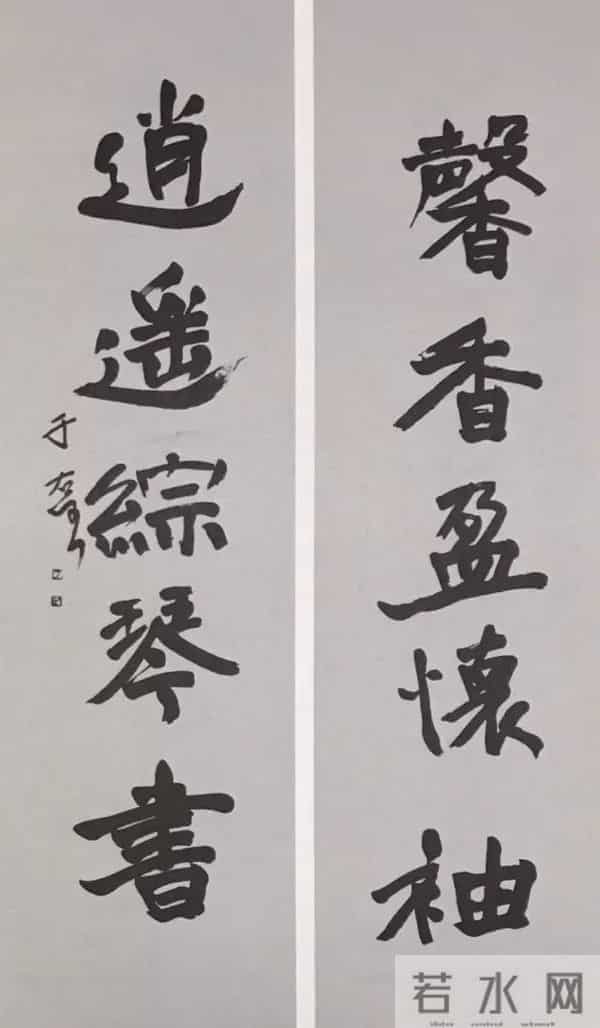 馨香盈懷袖
逍遥綜琴書
于右任
若水网